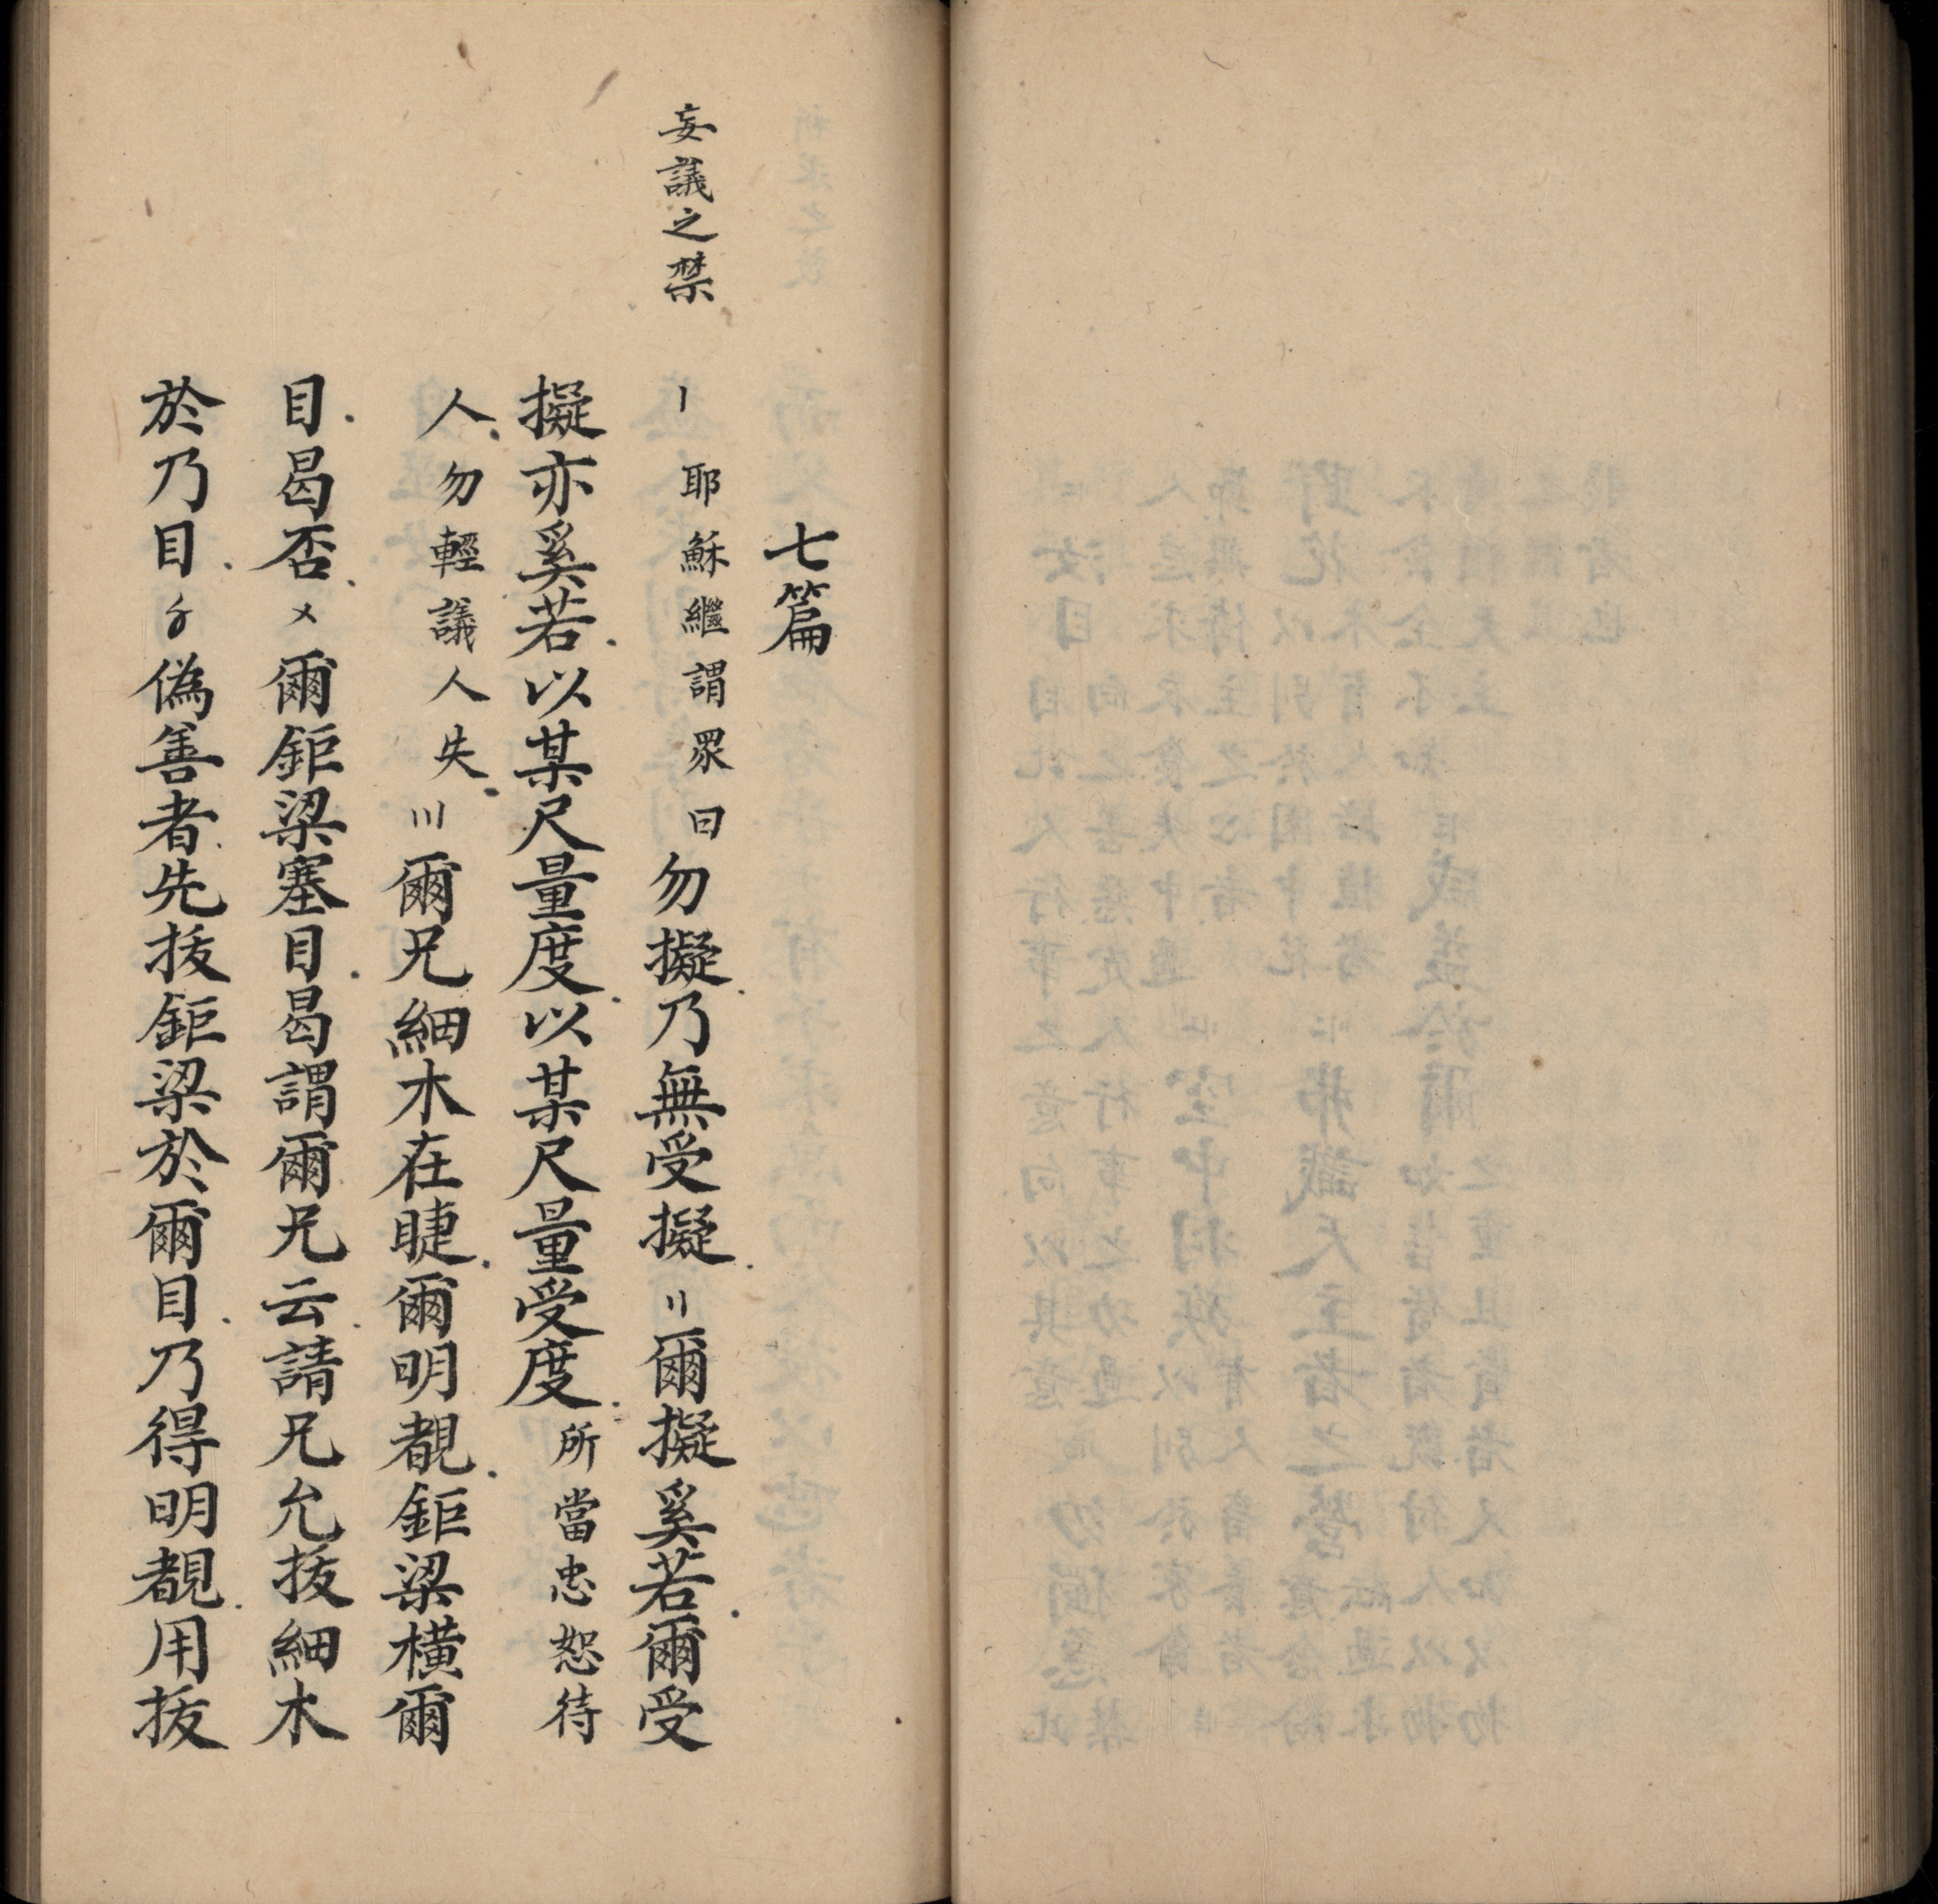 七篇
妄議之禁
〡耶穌繼謂眾曰勿擬乃無受擬〢爾擬奚若爾受
擬亦奚若以某尺量度以某尺量受度所當忠恕待
人勿輕議人失〣爾兄細木在睫爾明覩鉅梁橫爾
目曷否〤爾鉅梁塞目曷謂爾兄云請兄允拔細木
於乃目〥偽善者先拔鉅梁於爾目乃得明覩用拔